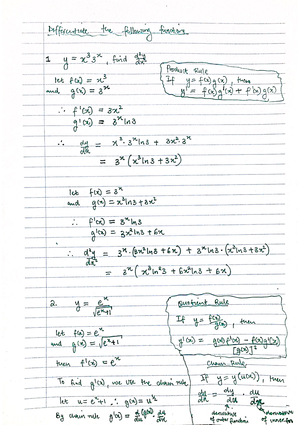 Differentiate the following functions.
1. y = x³3ˣ, find d²y/dx²
Product Rule
If y = f(x)g(x), then
y' = f(x)g'(x) + f'(x)g(x)
let f(x) = x³
and g(x) = 3ˣ
∴ f'(x) = 3x²
g'(x) = 3ˣ ln3
∴ dy/dx = x³·3ˣ ln3 + 3x²·3ˣ
= 3ˣ(x³ln3 + 3x²)
let f(x) = 3ˣ
and g(x) = x³ln3 + 3x²
∴ f'(x) = 3ˣ ln3
g'(x) = 3x²ln3 + 6x
∴ d²y/dx² = 3ˣ·(3x²ln3 + 6x) + 3ˣ ln3·(x³ln3 + 3x²)
= 3ˣ(x³ln²3 + 6x²ln3 + 6x)
2. y = eˣ/√(eˣ+1)
Quotient Rule
If y = f(x)/g(x), then
y'(x) = g(x)f'(x) − f(x)g'(x)/[g(x)]²
let f(x) = eˣ
and g(x) = √(eˣ+1)
then f'(x) = eˣ
Chain Rule
If y = y(u(x)), then
dy/dx = dy/du · du/dx
derivative of outer function
derivative of inner fxn
To find g'(x), we use the chain rule
let u = eˣ+1 ∴ g(x) = u^½
By chain rule g'(x) =